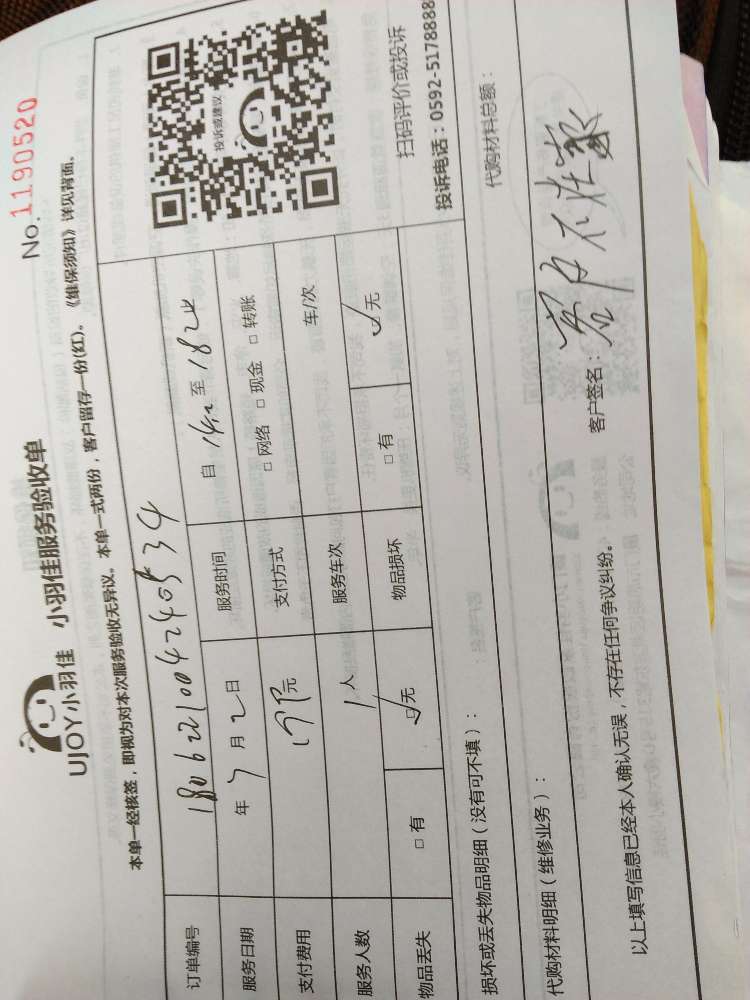 No.1190520
UJOY小羽佳 小羽佳服务验收单
本单一经核签，即视为对本次服务验收无异议。本单一式两份，客户留存一份(红)。《维保须知》详见背面。
订单编号 18062210042405 34
服务日期 年 7 月 2 日 服务时间 自 至 1824
支付费用 元 支付方式 □ 网络 □ 现金 □ 转账
服务人数 1 人 服务车次 车/次
物品丢失 □ 有 ✓无 物品损坏 □ 有 ✓无
投诉或建议
扫码评价或投诉
投诉电话：0592-5178888
损坏或丢失物品明细（没有可不填）：
代购材料明细（维修业务）： 代购材料总额：
以上填写信息已经本人确认无误，不存在任何争议纠纷。 客户签名：客户不在家